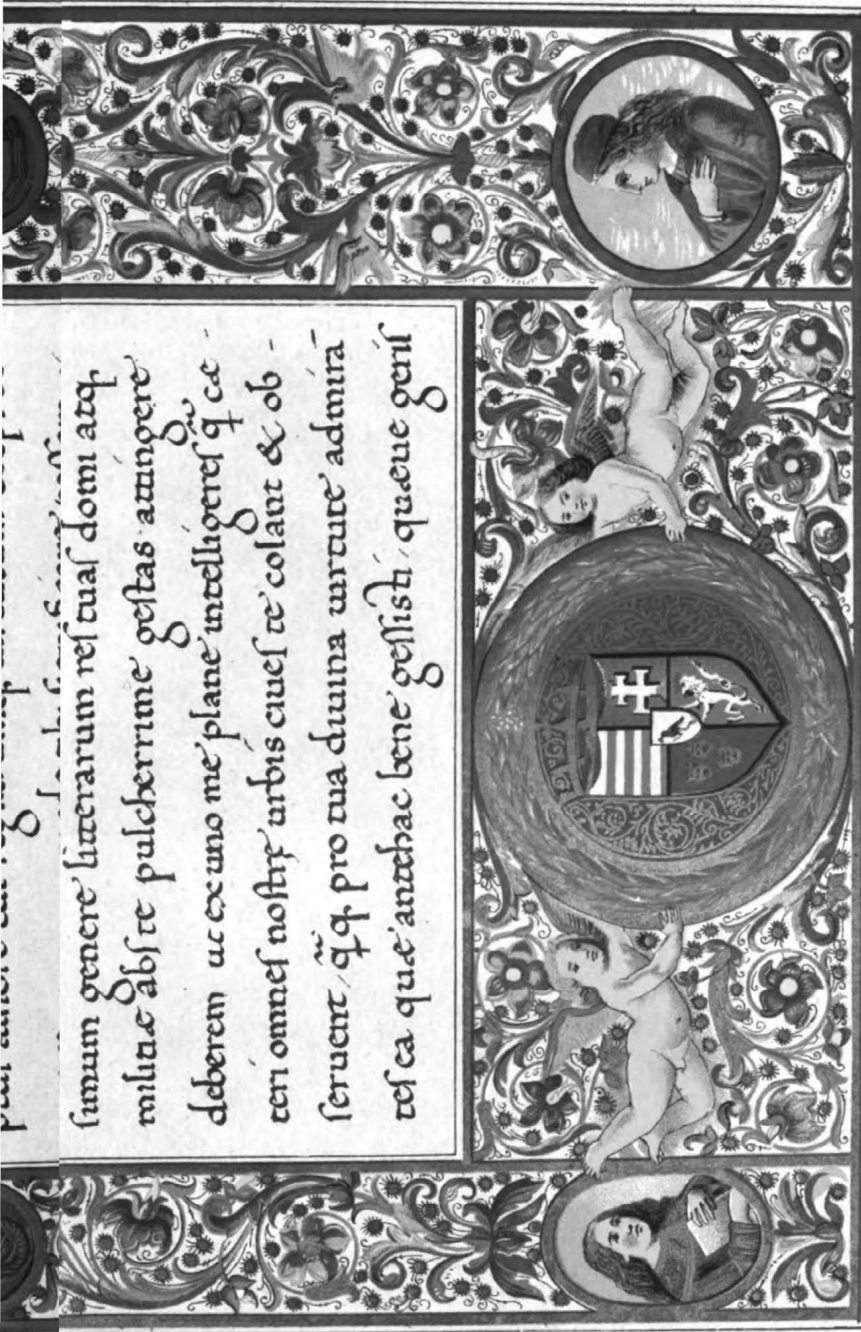 simum genere litterarum res tuas domi atq,
militiæ abs te pulcherrime gestas attingere
deberem ut ex uno me plane intelligeres q̃ cæ
teri omnes nostrę urbis ciues te colant & ob-
seruent, q̃ q, pro tua diuina uirtute admira-
tes ea quæ antehac bene gessisti, quæue geris